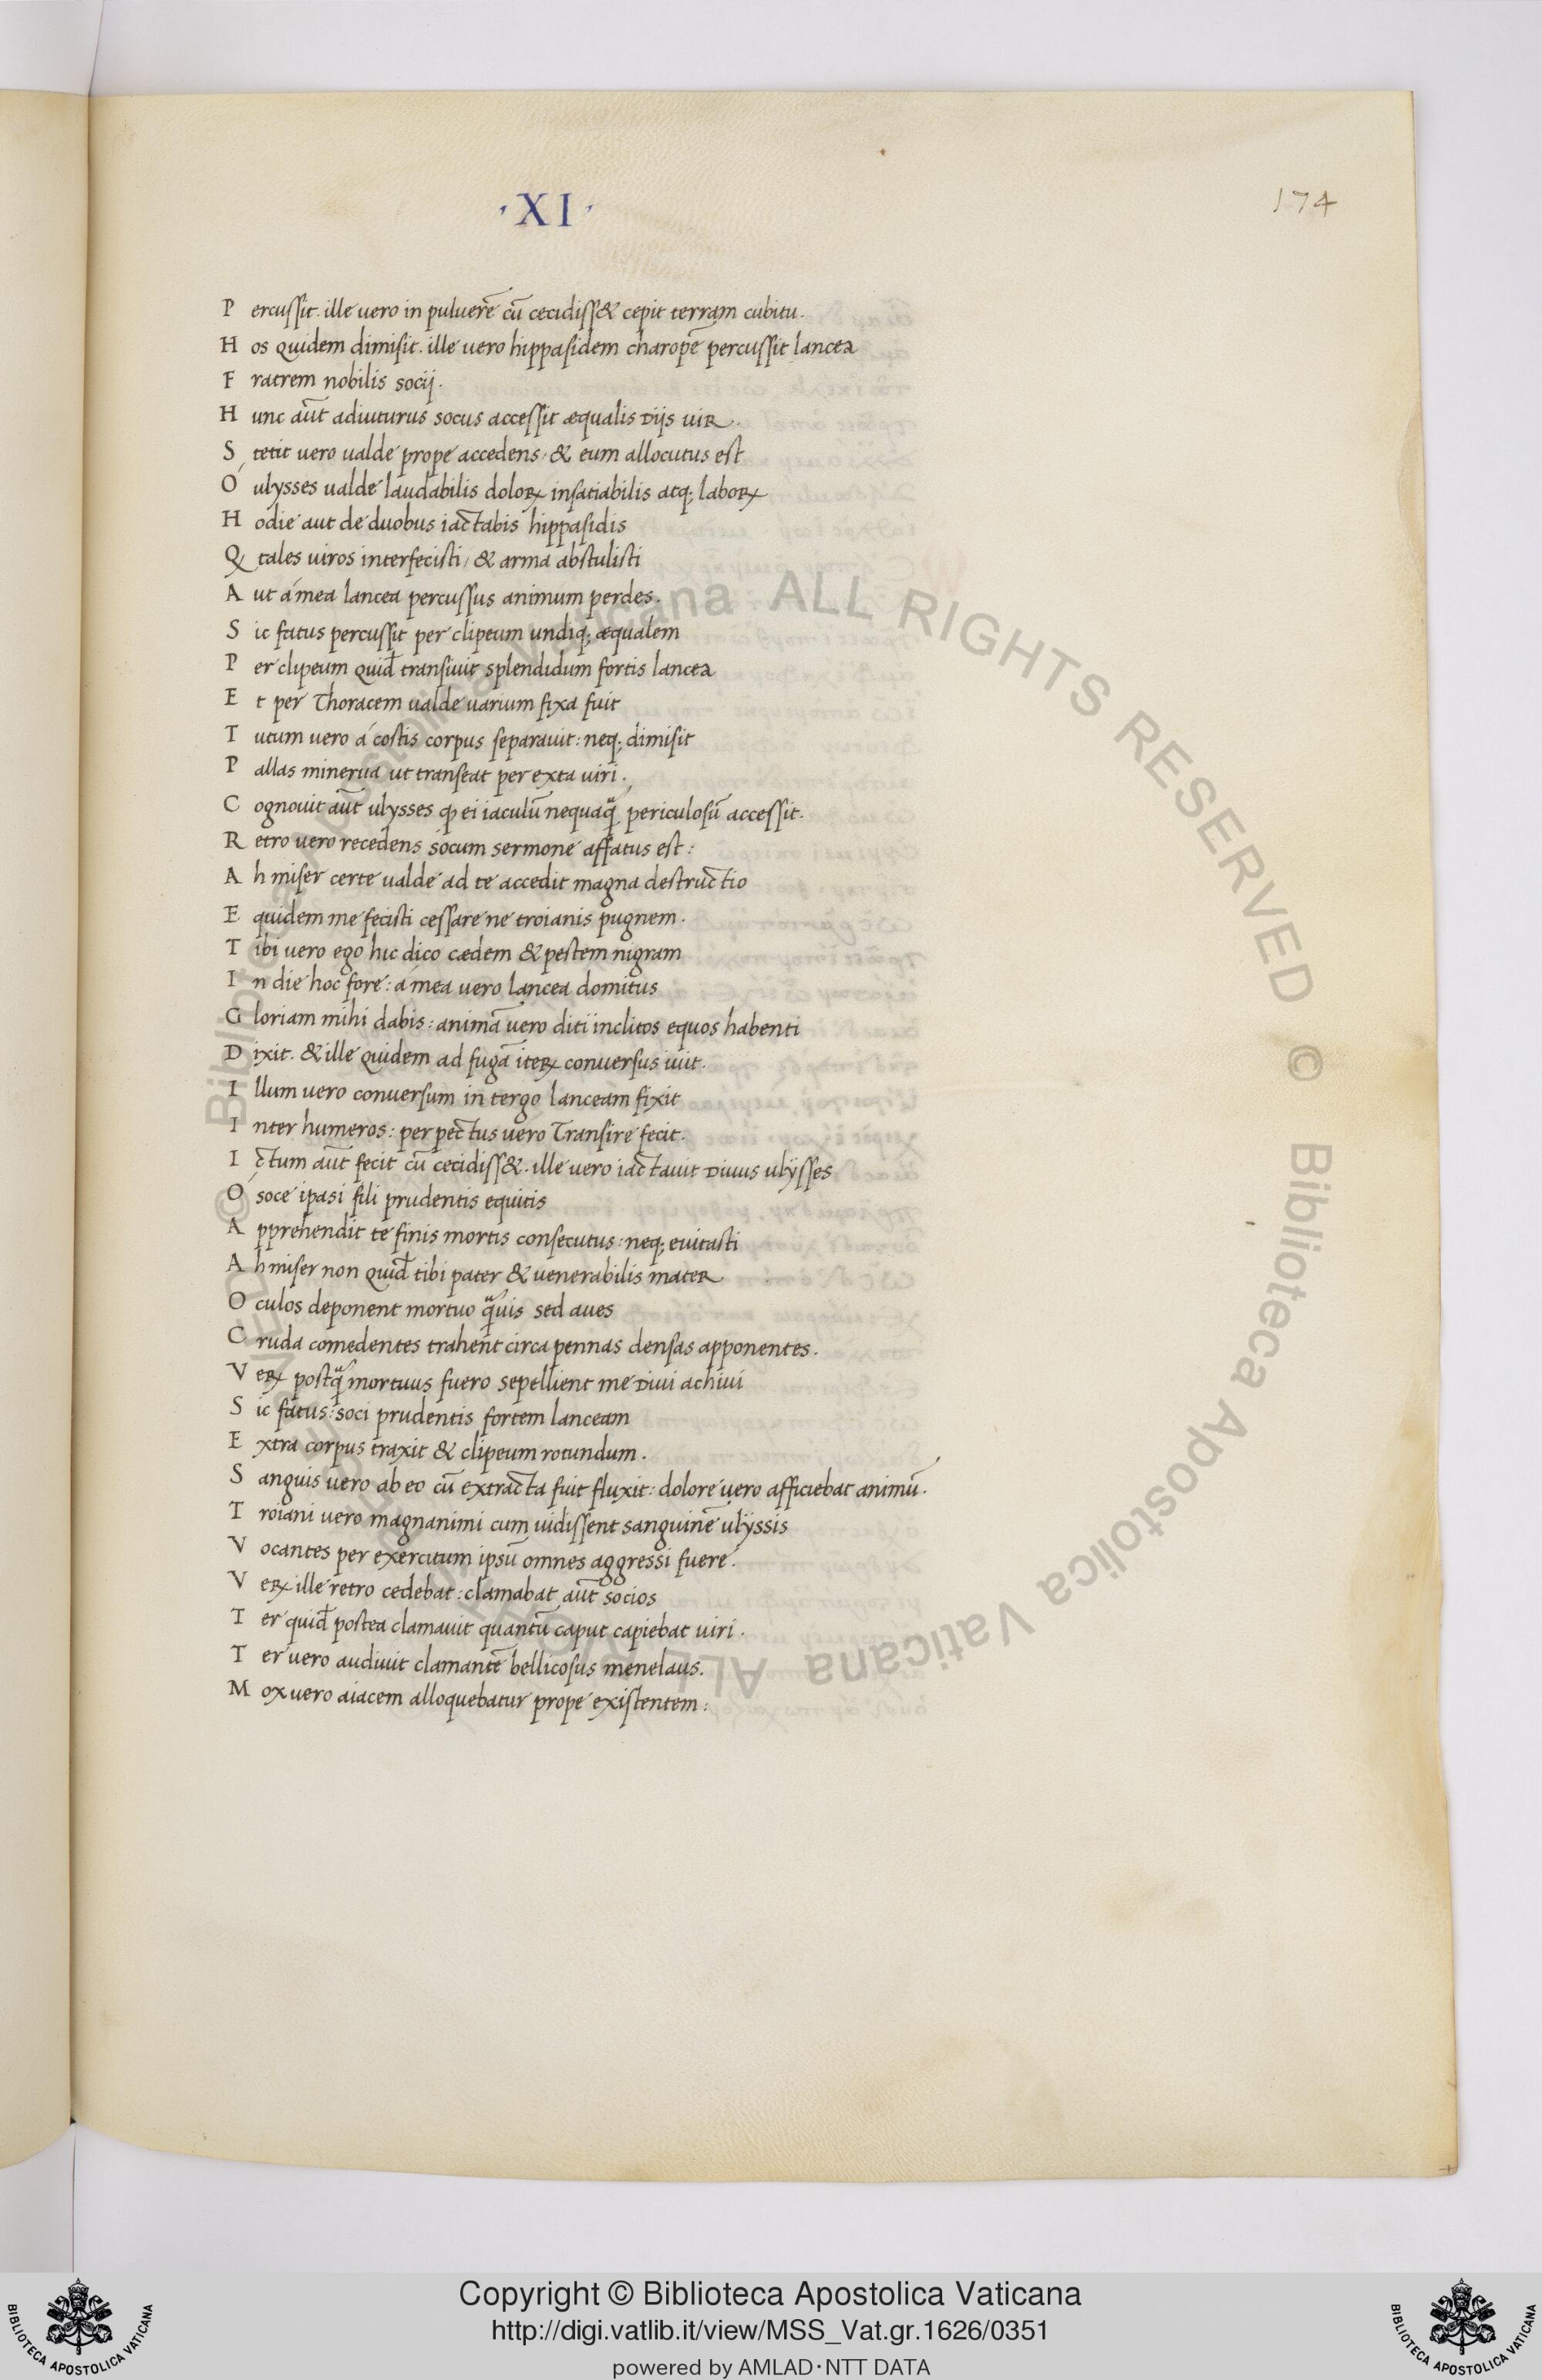 ·XI·
174
Percussit. ille uero in puluerē cū cecidiss& cepit terram cubitu.
Hos quidem dimisit. ille uero hippasidem charopē percussit lancea
Fratrem nobilis socij.
Hunc aūt adiuturus socus accessit æqualis Dijs uiR.
Stetit uero ualde prope accedens, & eum allocutus est
Ó ulysses ualde laudabilis doloꝝ insatiabilis atq; laboꝝ
Hodie aut de duobus iactabis hippasidis
Qꝫ tales uiros interfecisti, & arma abstulisti
Aut á mea lancea percussus animum perdes.
Sic fatus percussit per clipeum undiq; æqualem
Per clipeum quid̄ transiuit splendidum fortis lancea
Et per Thoracem ualde uarium fixa fuit
Tutum uero á costis corpus separauit: neq; dimisit
Pallas minerua ut transeat per exta uiri.
Cognouit aūt ulysses ꝙ ei iaculū nequaq̈ periculosū accessit.
Retro uero recedens socum sermone affatus est:
Ah miser certe ualde ad te accedit magna destructio
Equidem me fecisti cessare ne troianis pugnem.
Tibi uero ego hic dico cædem & pestem nigram
In die hoc fore: á mea uero lancea domitus
Gloriam mihi dabis: animā uero diti inclitos equos habenti
Dixit. & ille quidem ad fugā iteꝝ conuersus iuit.
Illum uero conuersum in tergo lanceam fixit
Inter humeros: per pectus uero Transire fecit.
Ictum aūt fecit cū cecidiss&. ille uero iactauit Diuus ulÿsses
Ó soce ipasi fili prudentis equitis
Apprehendit te finis mortis consecutus: neq; euitasti
Ah miser non quid̄ tibi pater & uenerabilis mateR
Oculos deponent mortuo q̈uis sed aues
Cruda comedentes trahent circa pennas densas apponentes.
Veꝝ postq̈ mortuus fuero sepellient me Diui achiui
Sic fatus: soci prudentis fortem lanceam
Extra corpus traxit & clipeum rotundum.
Sanguis uero ab eo cū extracta fuit fluxit: dolore uero afficiebat animū.
Troiani uero magnanimi cum uidissent sanguinē ulÿssis
Vocantes per exercitum ipsū omnes aggressi fuere.
Veꝝ ille retro cedebat: clamabat aūt socios
Ter quid̄ postea clamauit quantū caput capiebat uiri.
Ter uero audiuit clamantē bellicosus menelaus.
Mox uero aiacem alloquebatur prope existentem:
© Biblioteca Apostolica Vaticana ALL RIGHTS RESERVED © Biblioteca Apostolica Vaticana ALL RIGHTS RESERVED
Copyright © Biblioteca Apostolica Vaticana
http://digi.vatlib.it/view/MSS_Vat.gr.1626/0351
powered by AMLAD·NTT DATA
BIBLIOTECA APOSTOLICA VATICANA
BIBLIOTECA APOSTOLICA VATICANA